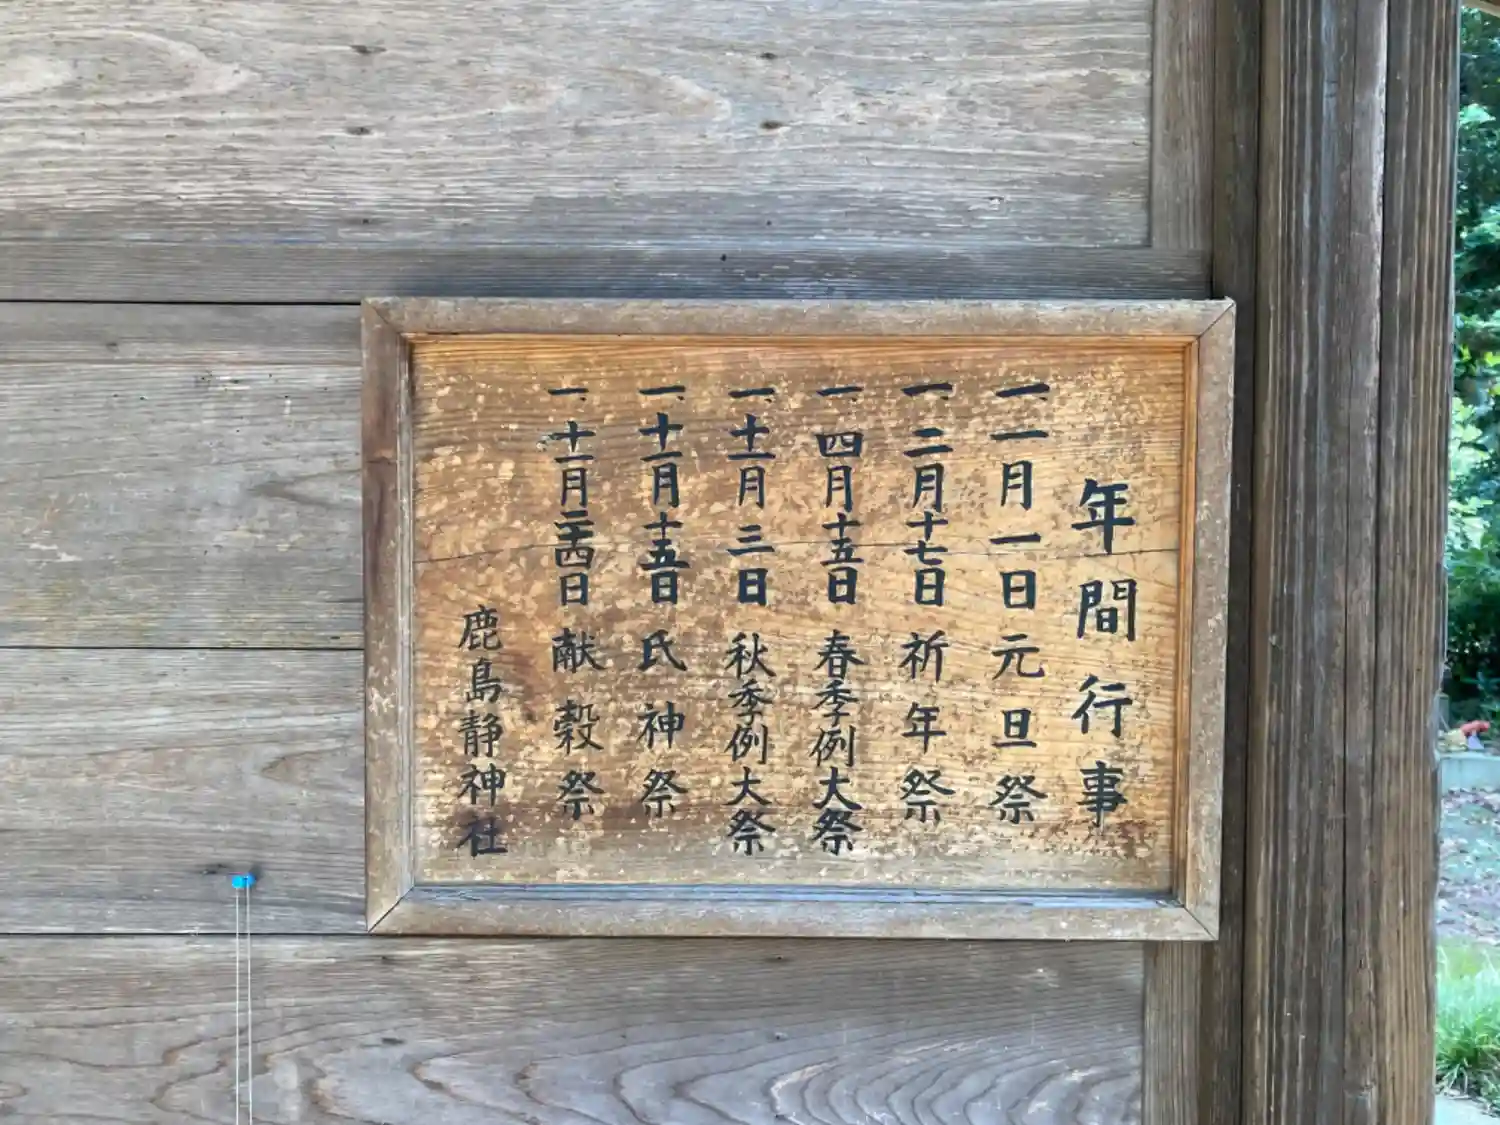 年間行事
一、一月一日 元旦祭
一、二月十七日 祈年祭
一、四月十五日 春季例大祭
一、十一月三日 秋季例大祭
一、十一月十五日 氏神祭
一、十一月二十四日 献穀祭
鹿島静神社